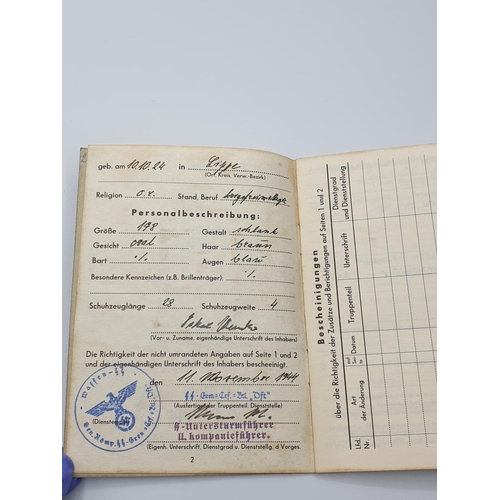 geb. am 10.10.24 in Lippe
(Ort, Kreis, Verw.-Bezirk)
Religion o.r. Stand, Beruf
Personalbeschreibung:
Größe 198 Gestalt schlank
Gesicht oval Haar braun
Bart ·/. Augen blau
Besondere Kennzeichen (z.B. Brillenträger): ·/.
Schuhzeuglänge 28 Schuhzeugweite 4
(Vor- u. Zuname, eigenhändige Unterschrift des Inhabers)
Die Richtigkeit der nicht umrandeten Angaben auf Seite 1 und 2
und der eigenhändigen Unterschrift des Inhabers bescheinigt.
den 11. November 1944
Waffen-SS
(Ausfertigender Truppenteil, Dienststelle)
(Dienststempel)
SS-Untersturmführer
u. Kompanieführer.
(Eigenh. Unterschrift, Dienstgrad u. Dienststellg. d. Vorges.
2
Bescheinigungen
über die Richtigkeit der Zusätze und Berichtigungen auf Seiten 1 und 2
Lfd. Nr.
Art der Änderung
Datum
Truppenteil
Unterschrift
Dienstgrad und Dienststellung